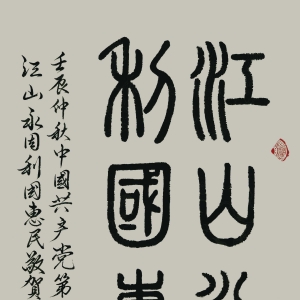 江山
利國
壬辰仲秋中國共产党第
江山永固利國惠民敬賀